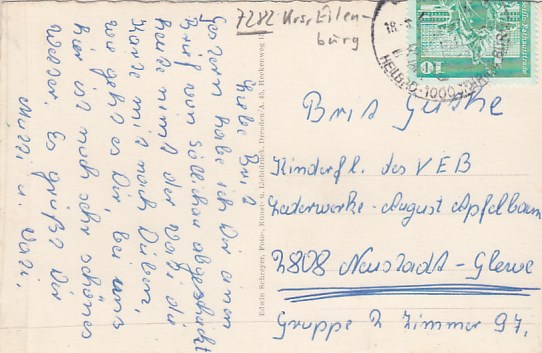 7282 Krsr Eilen-
burg
Liebe Brit
Gestern habe ich Dir einen
Brief von Söllichau abgeschickt
heute nimmt der Vati die
Karte mit nach Düben,
wie geht es Dir, bei uns
hier ist noch sehr schönes
Wetter. Es grüßt Dir
Mutti u. Vati.
Edwin Schreyer, Foto-, Kunst u. Lichtdruck, Dresden A.
18
HEILBAD
1000
10
Brit Guthe
Kinderfl. des VEB
Lederwerke-August Apfelbaum
2808 Neustadt-Glewe
Gruppe 2 Zimmer 97.